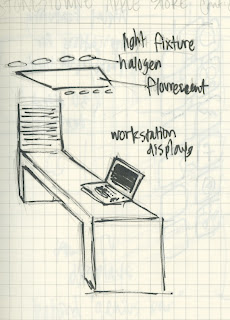 Apple Store
light fixture
halogen
flourescent
workstation
displays